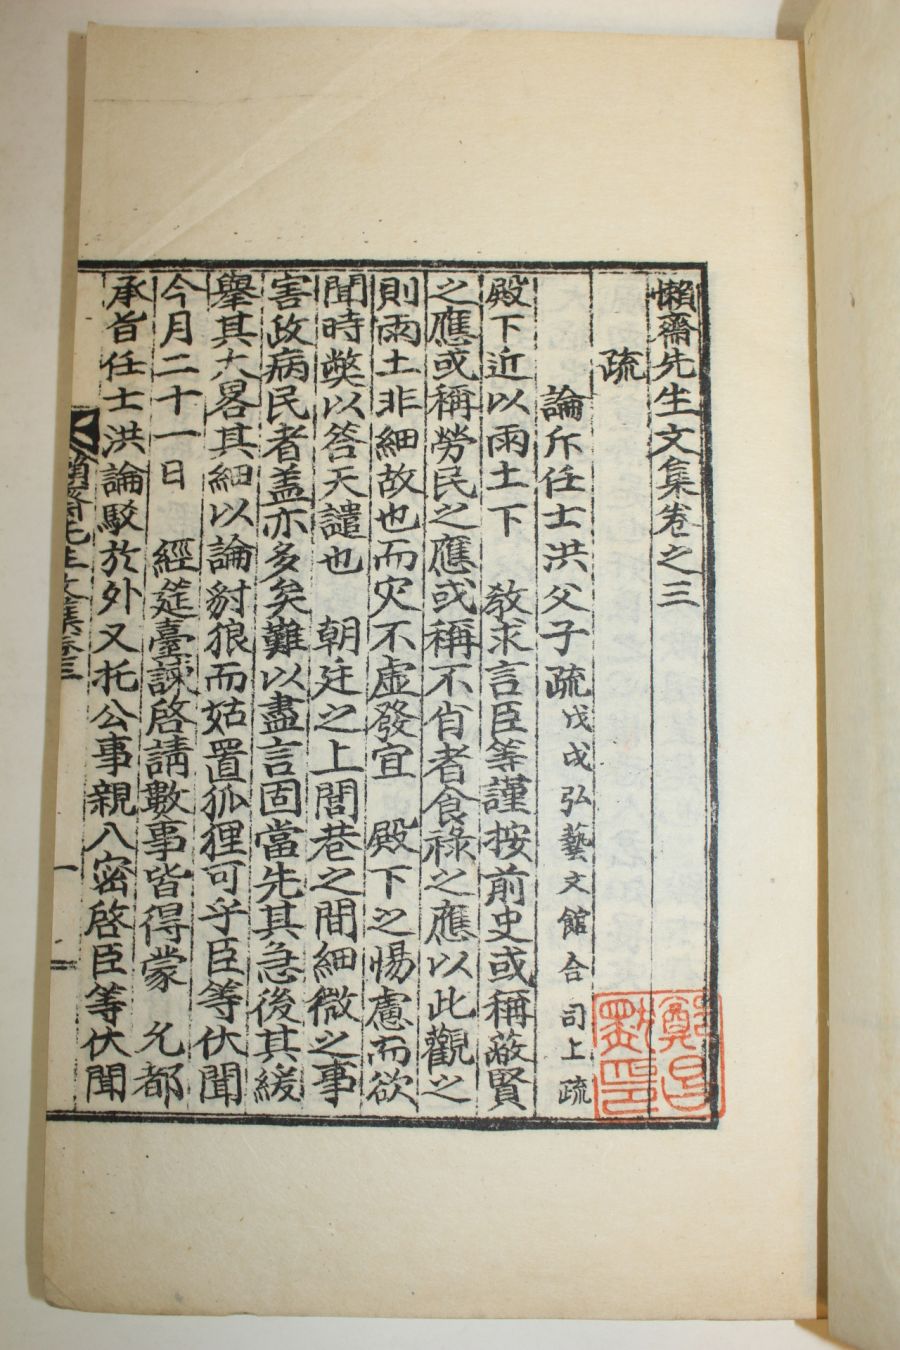 懶齋先生文集卷之三
疏
論斥任士洪父子疏 戊戌弘藝文館合司上疏
殿下近以雨土下 敎求言臣等謹按前史或稱蔽賢
之應或稱勞民之應或稱不肖者食祿之應以此觀之
則雨土非細故也而灾不虛發宜 殿下之惕慮而欲
聞時獘以答天譴也 朝廷之上閭巷之間細微之事
害政病民者盖亦多矣難以盡言固當先其急後其緩
擧其大畧其細以論豺狼而姑置狐狸可乎臣等伏聞
今月二十一日 經筵臺諫啓請數事皆得蒙 允都
承旨任士洪論駁於外又托公事親入密啓臣等伏聞
懶齋先生文集卷三
一